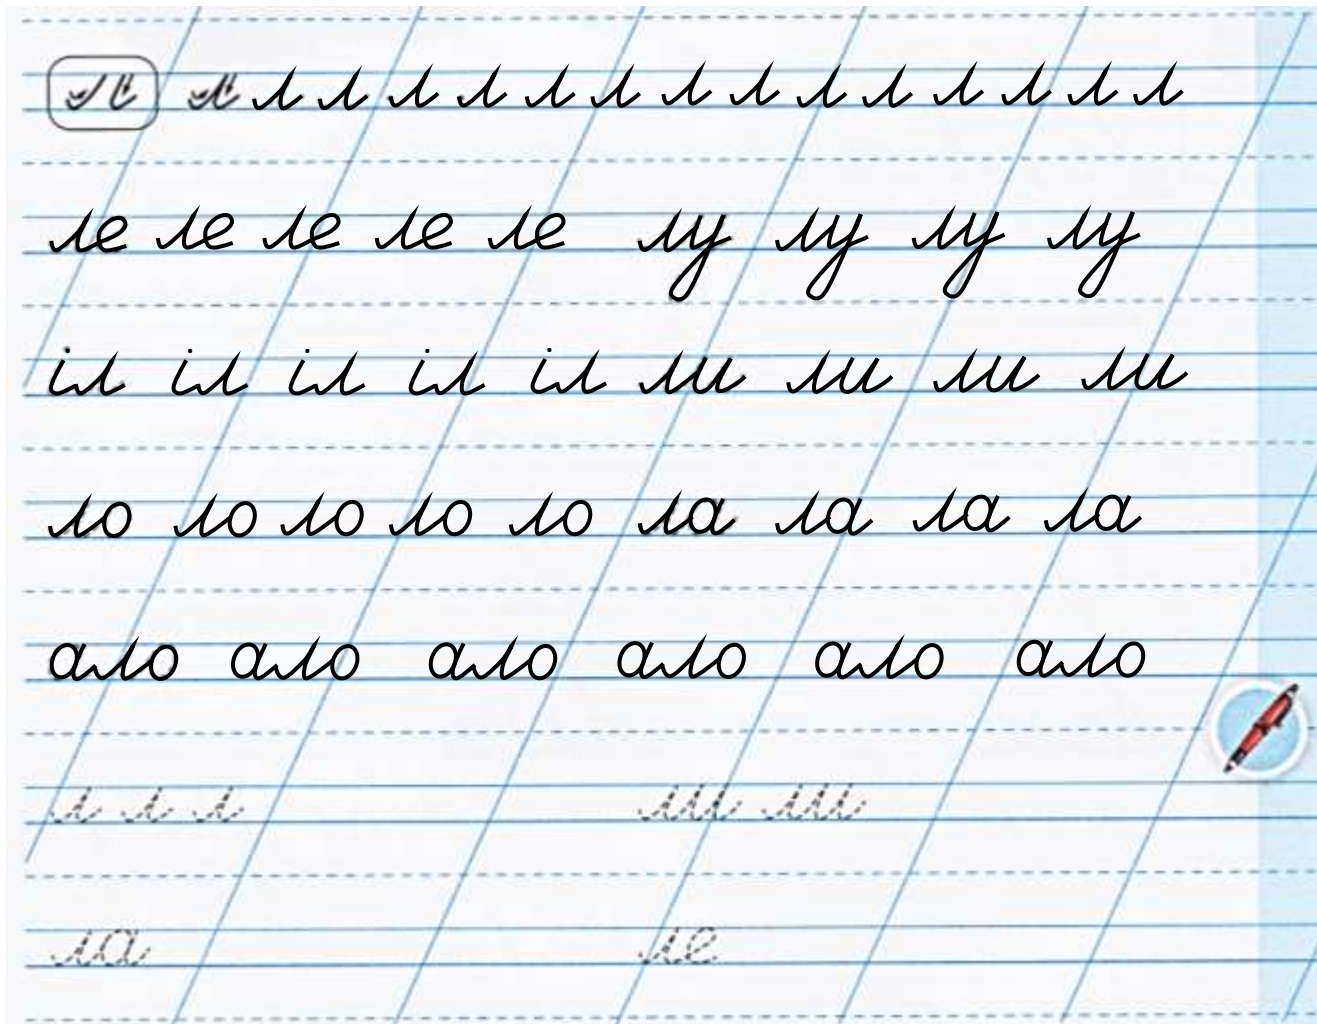 л л л л л л л л л л л л л л л
ле ле ле ле ле лу лу лу лу
іл іл іл іл іл ли ли ли ли
ло ло ло ло ло ла ла ла ла
ало ало ало ало ало ало
л л л ли ли
ла ле